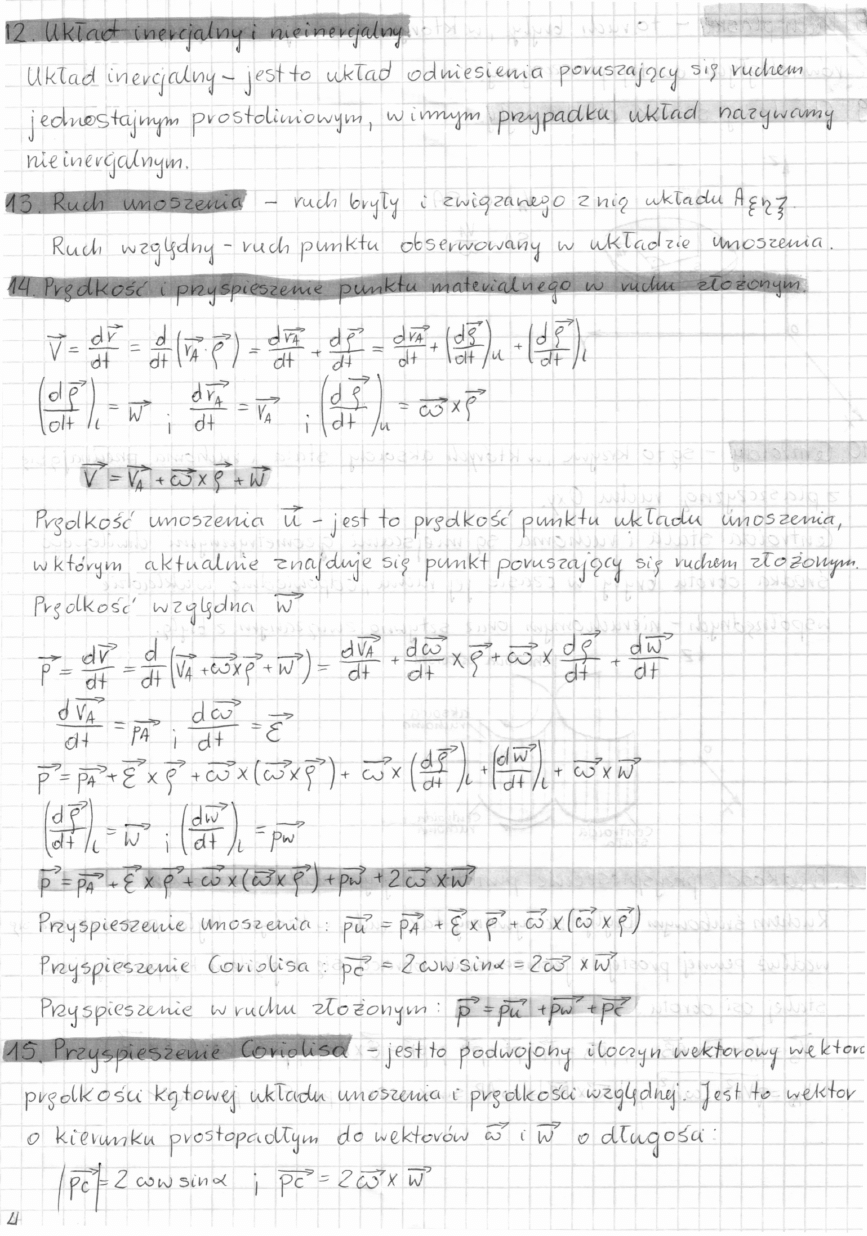 12. Układ inercjalny i nieinercjalny
Układ inercjalny – jest to układ odniesienia poruszający się ruchem
jednostajnym prostoliniowym, w innym przypadku układ nazywamy
nieinercjalnym.
13. Ruch unoszenia – ruch bryły i związanego z nią układu Aξηζ.
Ruch względny – ruch punktu obserwowany w układzie unoszenia.
14. Prędkość i przyspieszenie punktu materialnego w ruchu złożonym.
V⃗ = dr⃗/dt = d/dt (r⃗A · ρ⃗) = dr⃗A/dt + dρ⃗/dt = dr⃗A/dt + (dρ⃗/dt)u + (dρ⃗/dt)l
(dρ⃗/dt)l = w⃗ ; dr⃗A/dt = V⃗A ; (dρ⃗/dt)u = ω⃗ × ρ⃗
V⃗ = V⃗A + ω⃗ × ρ⃗ + w⃗
Prędkość unoszenia u⃗ – jest to prędkość punktu układu unoszenia,
w którym aktualnie znajduje się punkt poruszający się ruchem złożonym.
Prędkość względna w⃗
p⃗ = dv⃗/dt = d/dt (V⃗A + ω⃗ × ρ⃗ + w⃗) = dV⃗A/dt + dω⃗/dt × ρ⃗ + ω⃗ × dρ⃗/dt + dw⃗/dt
dV⃗A/dt = p⃗A ; dω⃗/dt = ε⃗
p⃗ = p⃗A + ε⃗ × ρ⃗ + ω⃗ × (ω⃗ × ρ⃗) + ω⃗ × (dρ⃗/dt)l + (dw⃗/dt)l + ω⃗ × w⃗
(dρ⃗/dt)l = w⃗ ; (dw⃗/dt)l = p⃗w
p⃗ = p⃗A + ε⃗ × ρ⃗ + ω⃗ × (ω⃗ × ρ⃗) + p⃗w + 2ω⃗ × w⃗
Przyspieszenie unoszenia : p⃗u = p⃗A + ε⃗ × ρ⃗ + ω⃗ × (ω⃗ × ρ⃗)
Przyspieszenie Coriolisa : p⃗c = 2ωw sinα = 2ω⃗ × w⃗
Przyspieszenie w ruchu złożonym : p⃗ = p⃗u + p⃗w + p⃗c
15. Przyspieszenie Coriolisa – jest to podwojony iloczyn wektorowy wektora
prędkości kątowej układu unoszenia i prędkości względnej. Jest to wektor
o kierunku prostopadłym do wektorów ω⃗ i w⃗ o długości :
|p⃗c| = 2ωw sinα ; p⃗c = 2ω⃗ × w⃗
4